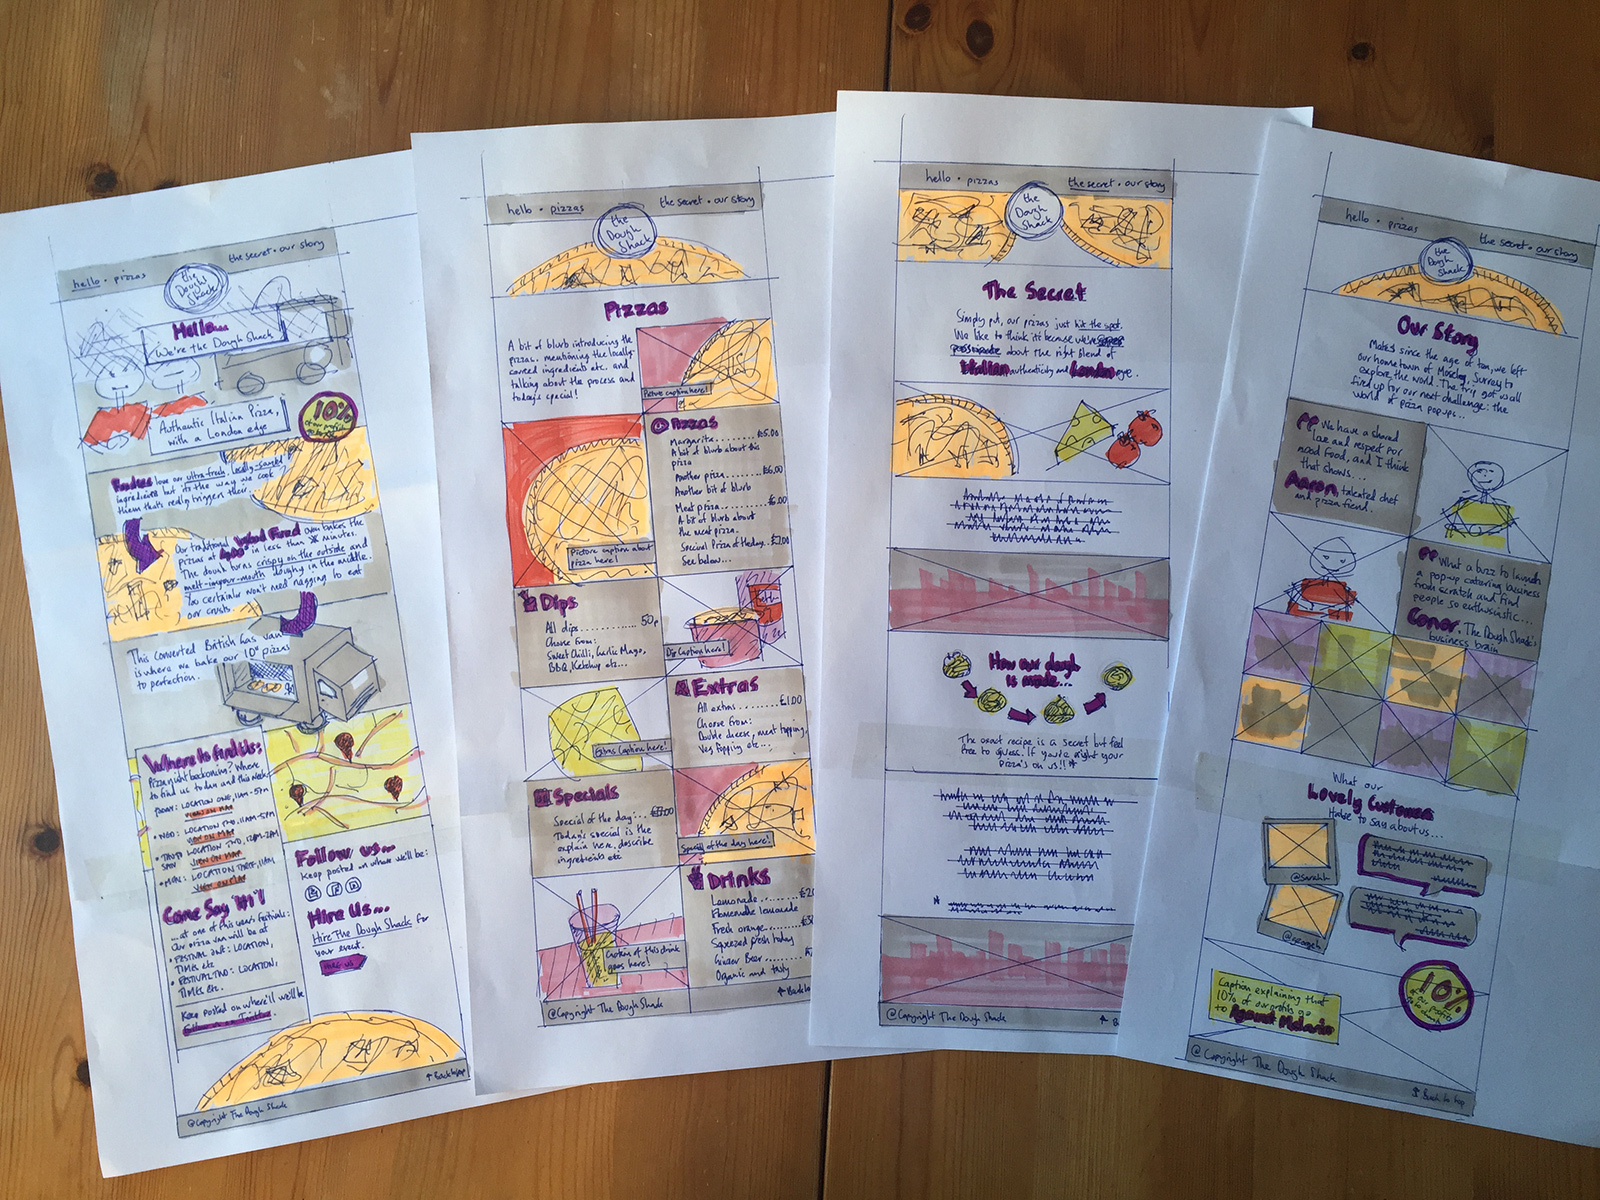 hello • pizzas
the secret • our story
the
Dough
Shack
Hello...
We're the Dough Shack
Authentic Italian Pizza,
with a London edge
10%
love our ultra-fresh, locally-sourced
ingredients but it's the way we cook
them that's really triggers their
Our traditional Wood Fired oven bakes the
pizzas at 400° in less than minutes.
The dough turns crispy on the outside and
melt-in-your-mouth doughy in the middle.
You certainly won't need nagging to eat
our crusts...
This converted British gas van
is where we bake our 10" pizzas
to perfection.
Where to find Us:
Pizza night beckoning? Where
to find us today and this week:
TODAY: LOCATION ONE, 11AM-5PM
VIEW ON MAP
LOCATION TWO, 11AM-5PM
VIEW ON MAP
LOCATION TWO, 12PM-2AM
VIEW ON MAP
• MON: LOCATION THREE, 11AM
VIEW ON MAP
Come Say 'Hi'!
...at one of this year's festivals:
Our pizza van will be at
• FESTIVAL ONE: LOCATION,
TIMES etc
• FESTIVAL TWO: LOCATION,
TIMES etc.
Keep posted on where we'll be
Follow us...
Keep posted on where we'll be:
Hire Us...
Hire The Dough Shack for
your event.
HIRE US
©Copyright The Dough Shack
↑ Back to top
hello • pizzas
the secret • our story
the
Dough
Shack
Pizzas
A bit of blurb introducing the
pizzas, mentioning the locally-
sourced ingredients etc. and
talking about the process and
today's special!
Picture caption here!
Pizzas
Margarita......... £5.00
A bit of blurb about this
pizza
Another pizza....... £6.00
Another bit of blurb
Meat pizza....... £6.00
A bit of blurb about
the meat pizza.
Special Pizza of the day.. £7.00
See below...
Picture caption about
pizza here!
Dips
All dips............ 50p
Choose from:
Sweet Chilli, Garlic Mayo,
BBQ, Ketchup etc...
Dip Caption here!
Extras
All extras.......... £1.00
Choose from:
Double cheese, meat topping,
Veg topping etc...
Extras Caption here!
Specials
Special of the day:..
Today's special is the
explain here, describe
ingredients etc
Special of the day here!
Drinks
Lemonade
Homemade lemonade
Fresh orange
Squeezed fresh today
Ginger Beer
Organic and tasty
Caption of this drink
goes here!
©Copyright The Dough Shack
↑ Back to
hello • pizzas
the secret • our story
the
Dough
Shack
The Secret
Simply put, our pizzas just hit the spot.
We like to think it's because we're
passionate about the right blend of
Italian authenticity and London eye.
How our dough
is made...
The exact recipe is a secret but feel
free to guess. If you're right your
Pizza's on us!! *
*
©Copyright The Dough Shack
↑ B
hello • pizzas
the secret • our story
the
Dough
Shack
Our Story
Mates since the age of ten, we left
our hometown of Surrey to
explore the world. The trip got us all
fired up for our next challenge: the
world of pizza popups...
We have a shared
love and respect for
good food, and I think
that shows...
Aaron, talented chef
and pizza fiend.
What a buzz to launch
a pop-up catering business
from scratch and find
people so enthusiastic...
Conor, The Dough Shack's
business brain
What our
Lovely Customers
have to say about us...
@sarahh
@georgeh
Caption explaining that
10% of our profits go
to Against Malaria
10%
of our
profits
© Copyright The Dough Shack
↑ Back to top